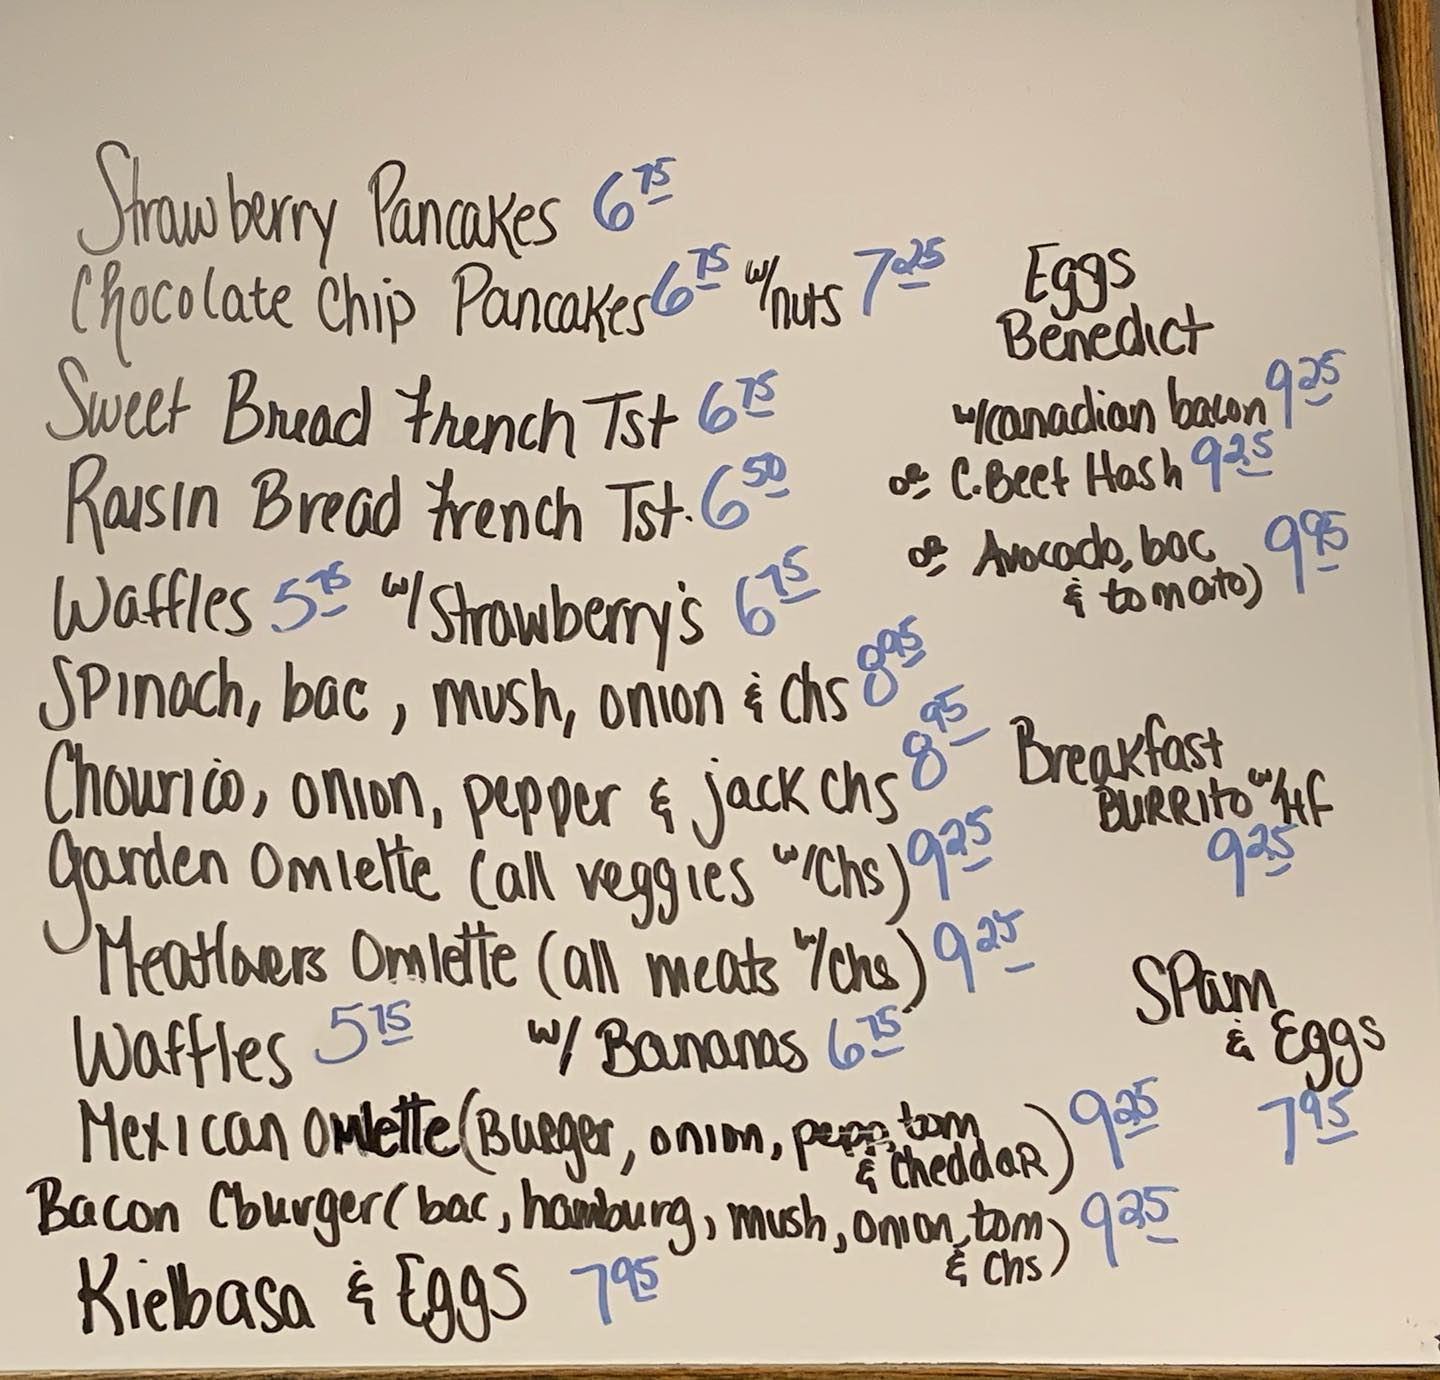 Strawberry Pancakes 6 75
Chocolate Chip Pancakes 6 75 w/nuts 7 25
Sweet Bread French Tst 6 75
Raisin Bread French Tst. 6 50
Waffles 5 75 w/ Strawberry's 6 75
Spinach, bac, mush, onion & chs 8 95
Chourico, onion, pepper & jack chs 8 95
Garden Omlette (all veggies w/chs) 9 25
Meatlovers Omlette (all meats w/chs) 9 25
Waffles 5 75 w/ Bananas 6 75
Mexican Omlette (Burger, onion, pepp, tom
& cheddar) 9 25
Bacon Cburger (bac, hamburg, mush, onion, tom
& chs) 9 25
Kielbasa & Eggs 7 95
Eggs
Benedict
w/canadian bacon 9 25
or C.Beef Hash 9 25
or Avocado, bac
& tomato) 9 95
Breakfast
Burrito w/HF
9 25
Spam
& Eggs
7 95